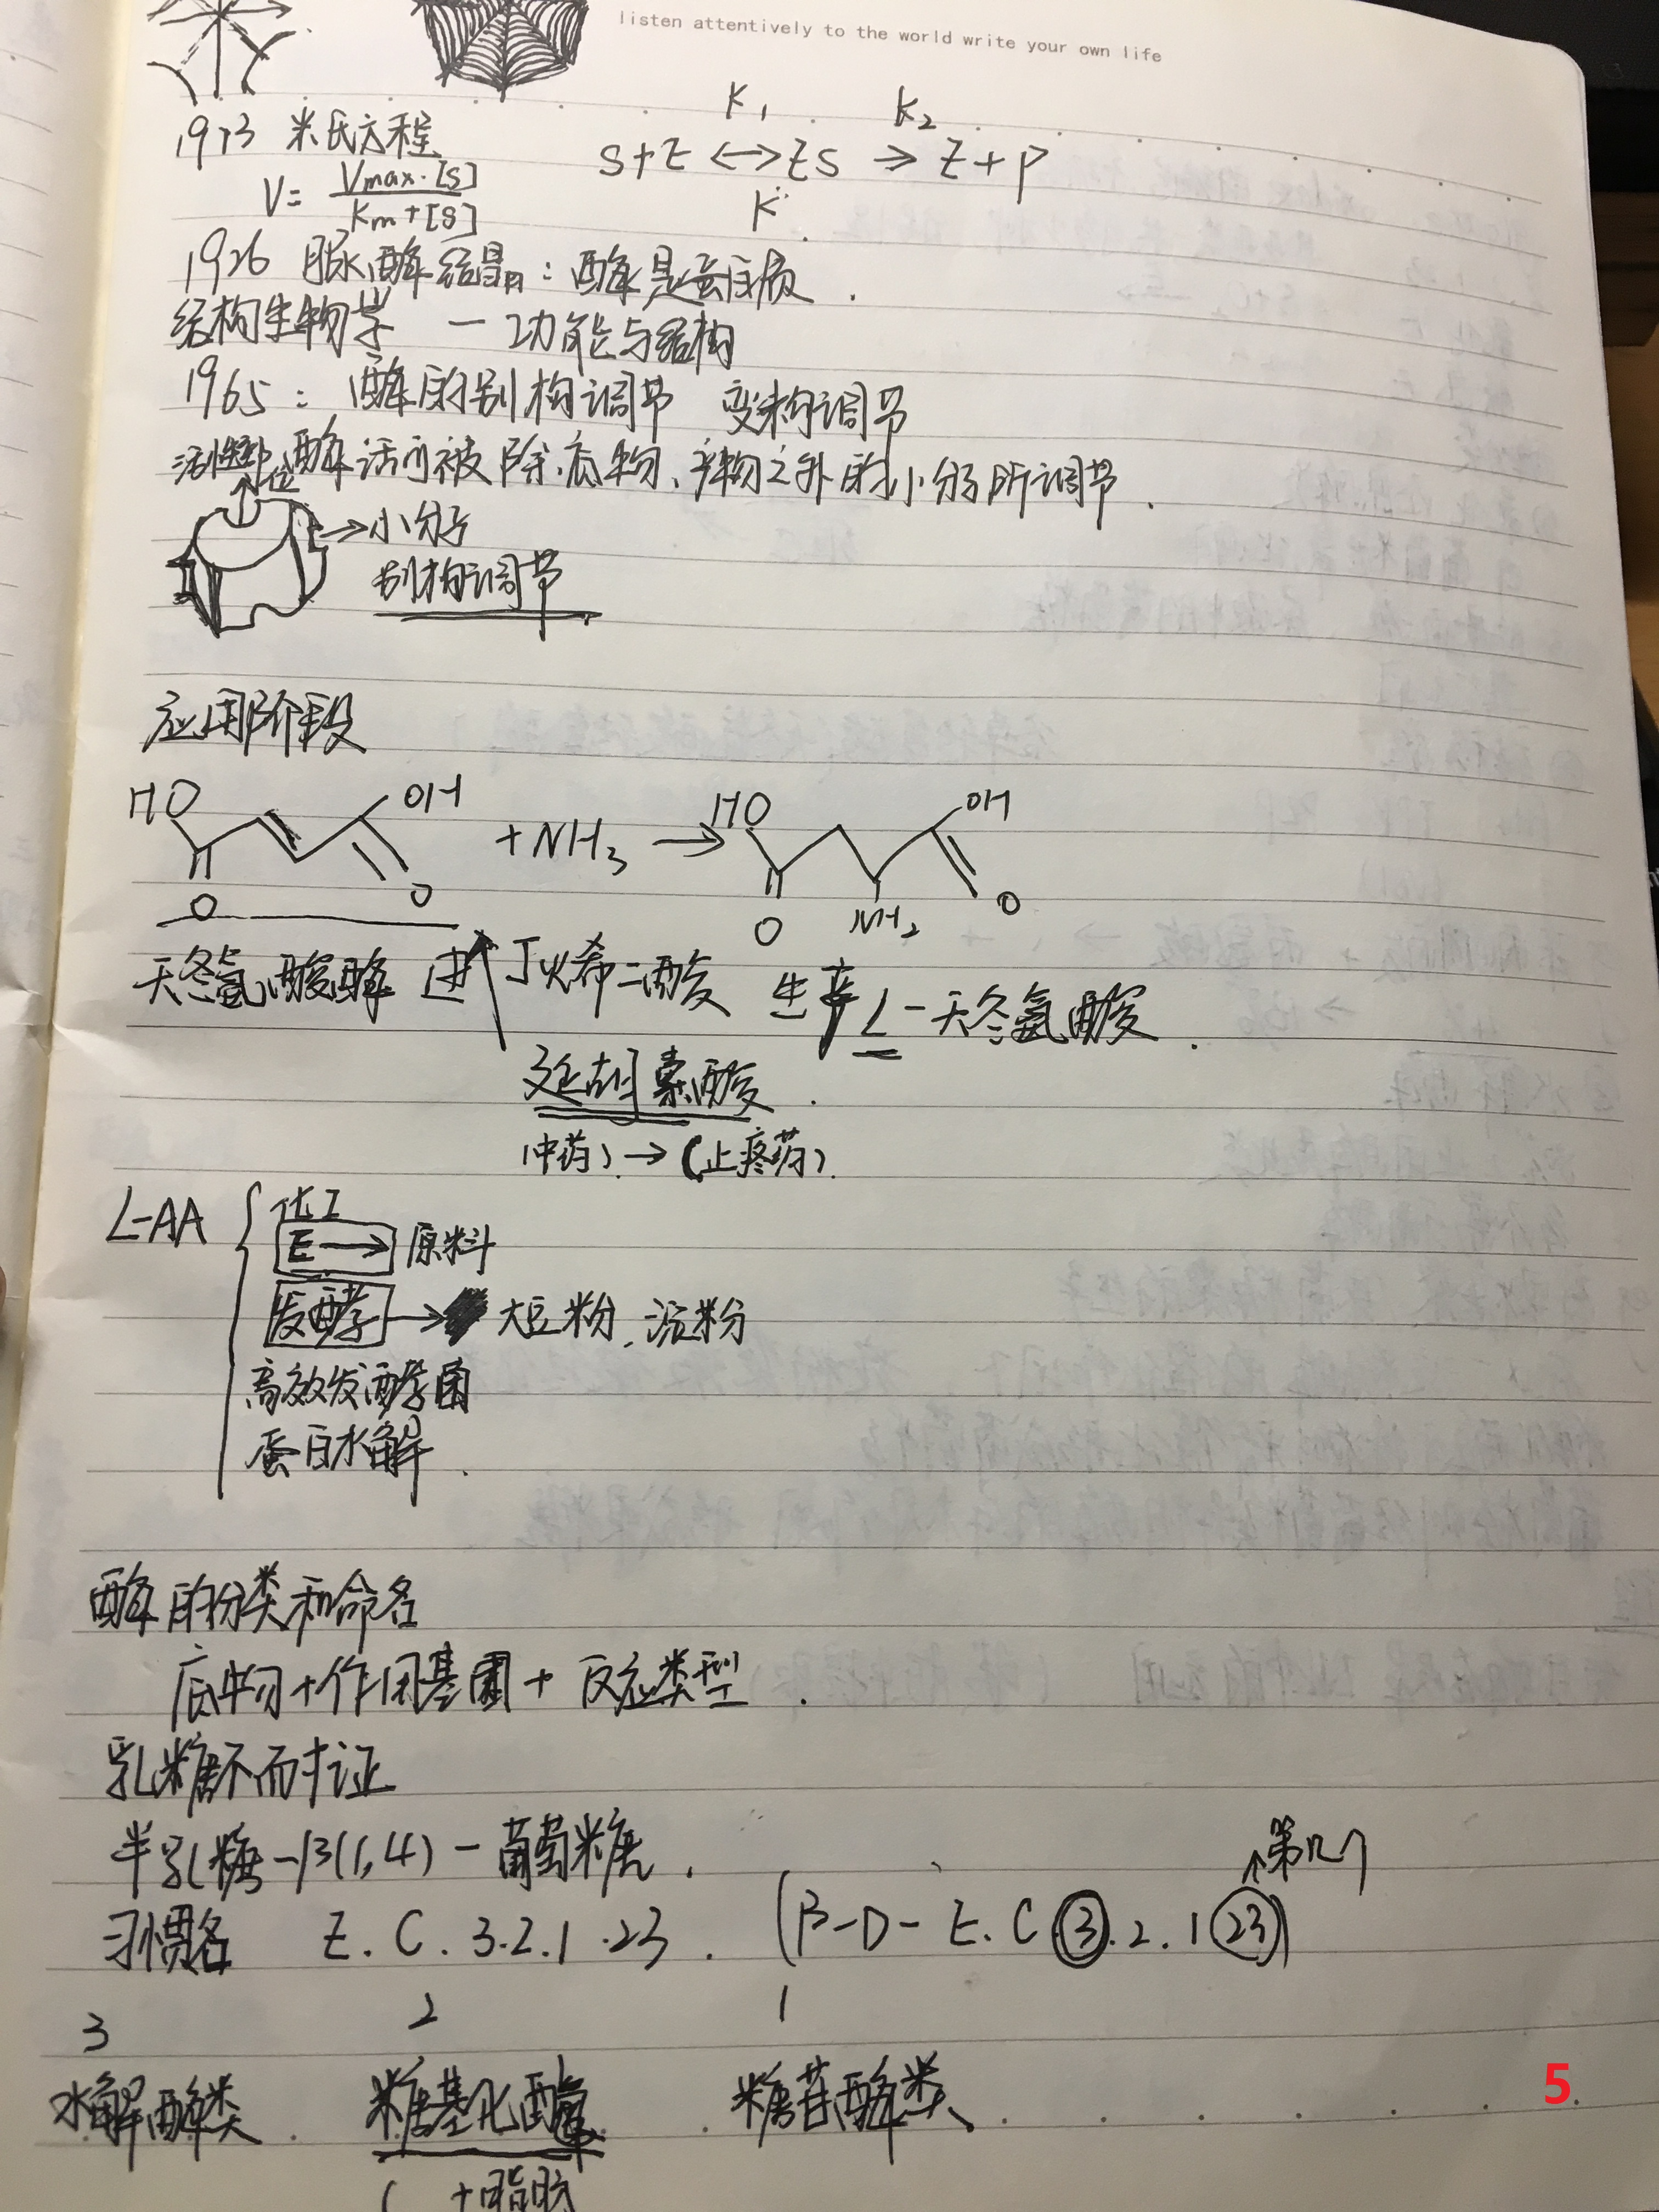 listen attentively to the world write your own life
1913 米氏方程
V= Vmax·[S] / Km+[S]
K1 K2
S+E ⟷ ES → E+P
K
1926 脲酶结晶：酶是蛋白质.
结构生物学 — 功能与结构
1965： 酶的别构调节 变构调节
活性部位 酶活可被除底物、产物之外的小分子所调节.
→小分子
别构调节.
应用阶段
HO OH +NH3 → HO OH
O O O NH2 O
天冬氨酸酶 进 丁烯二酸 生产L-天冬氨酸.
延胡索酸.
(中药) → (止疼药).
L-AA { 化工
E → 原料
发酵 → 大豆粉、淀粉
高效发酵菌
蛋白水解.
酶的分类和命名
底物+作用基团+反应类型.
乳糖不耐症
半乳糖-β(1,4)-葡萄糖.
↑第几个
习惯名 E.C.3.2.1.23. (β-D- E.C.3.2.1 23)
3 2 1
水解酶类. 糖基化酶. 糖苷酶类.
+脂肪
5